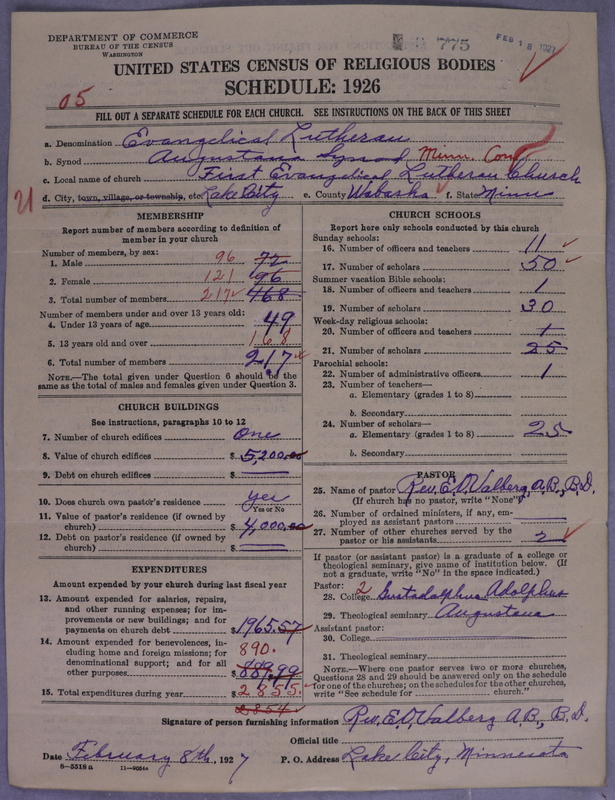 DEPARTMENT OF COMMERCE
BUREAU OF THE CENSUS
WASHINGTON
775
FEB 18 1927
UNITED STATES CENSUS OF RELIGIOUS BODIES
SCHEDULE: 1926
05
FILL OUT A SEPARATE SCHEDULE FOR EACH CHURCH. SEE INSTRUCTIONS ON THE BACK OF THIS SHEET
a. Denomination Evangelical Lutheran
b. Synod Augustana Synod Minn. Conf
c. Local name of church First Evangelical Lutheran Church
21
d. City, town, village, or township, etc Lake City e. County Wabasha f. State Minn
MEMBERSHIP
Report number of members according to definition of
member in your church
Number of members, by sex:
1. Male 96 72
2. Female 121 96
3. Total number of members 217 468
Number of members under and over 13 years old:
4. Under 13 years of age 49
5. 13 years old and over 168
6. Total number of members 217
NOTE.—The total given under Question 6 should be the
same as the total of males and females given under Question 3.
CHURCH BUILDINGS
See instructions, paragraphs 10 to 12
7. Number of church edifices one
8. Value of church edifices $ 5,200.00
9. Debt on church edifices $
10. Does church own pastor's residence yes
Yes or No
11. Value of pastor's residence (if owned by
church) $ 4,000.00
12. Debt on pastor's residence (if owned by
church) $
EXPENDITURES
Amount expended by your church during last fiscal year
13. Amount expended for salaries, repairs,
and other running expenses; for im-
provements or new buildings; and for
payments on church debt $ 1965.57
14. Amount expended for benevolences, in-
cluding home and foreign missions; for
denominational support; and for all
other purposes 890. $ 889.99
15. Total expenditures during year $ 2855.
2854
CHURCH SCHOOLS
Report here only schools conducted by this church
Sunday schools:
16. Number of officers and teachers 11
17. Number of scholars 50
Summer vacation Bible schools:
18. Number of officers and teachers 1
19. Number of scholars 30
Week-day religious schools:
20. Number of officers and teachers 1
21. Number of scholars 25
Parochial schools:
22. Number of administrative officers 1
23. Number of teachers—
a. Elementary (grades 1 to 8)
b. Secondary
24. Number of scholars—
a. Elementary (grades 1 to 8) 25
b. Secondary
PASTOR
25. Name of pastor Rev. E.O. Valberg, A.B., B.D.
(If church has no pastor, write "None")
26. Number of ordained ministers, if any, em-
ployed as assistant pastors
27. Number of other churches served by the
pastor or his assistants 2
If pastor (or assistant pastor) is a graduate of a college or
theological seminary, give name of institution below. (If
not a graduate, write "No" in the space indicated.)
Pastor: 2
28. College Gustadolphus Adolphus
29. Theological seminary Augustana
Assistant pastor:
30. College
31. Theological seminary
NOTE.—Where one pastor serves two or more churches,
Questions 28 and 29 should be answered only on the schedule
for one of the churches; on the schedules for the other churches,
write "See schedule for church."
Signature of person furnishing information Rev. E.O. Valberg A.B., B.D.
Official title
Date February 8th, 1927 P. O. Address Lake City, Minnesota
8-5518 a 11-9054a